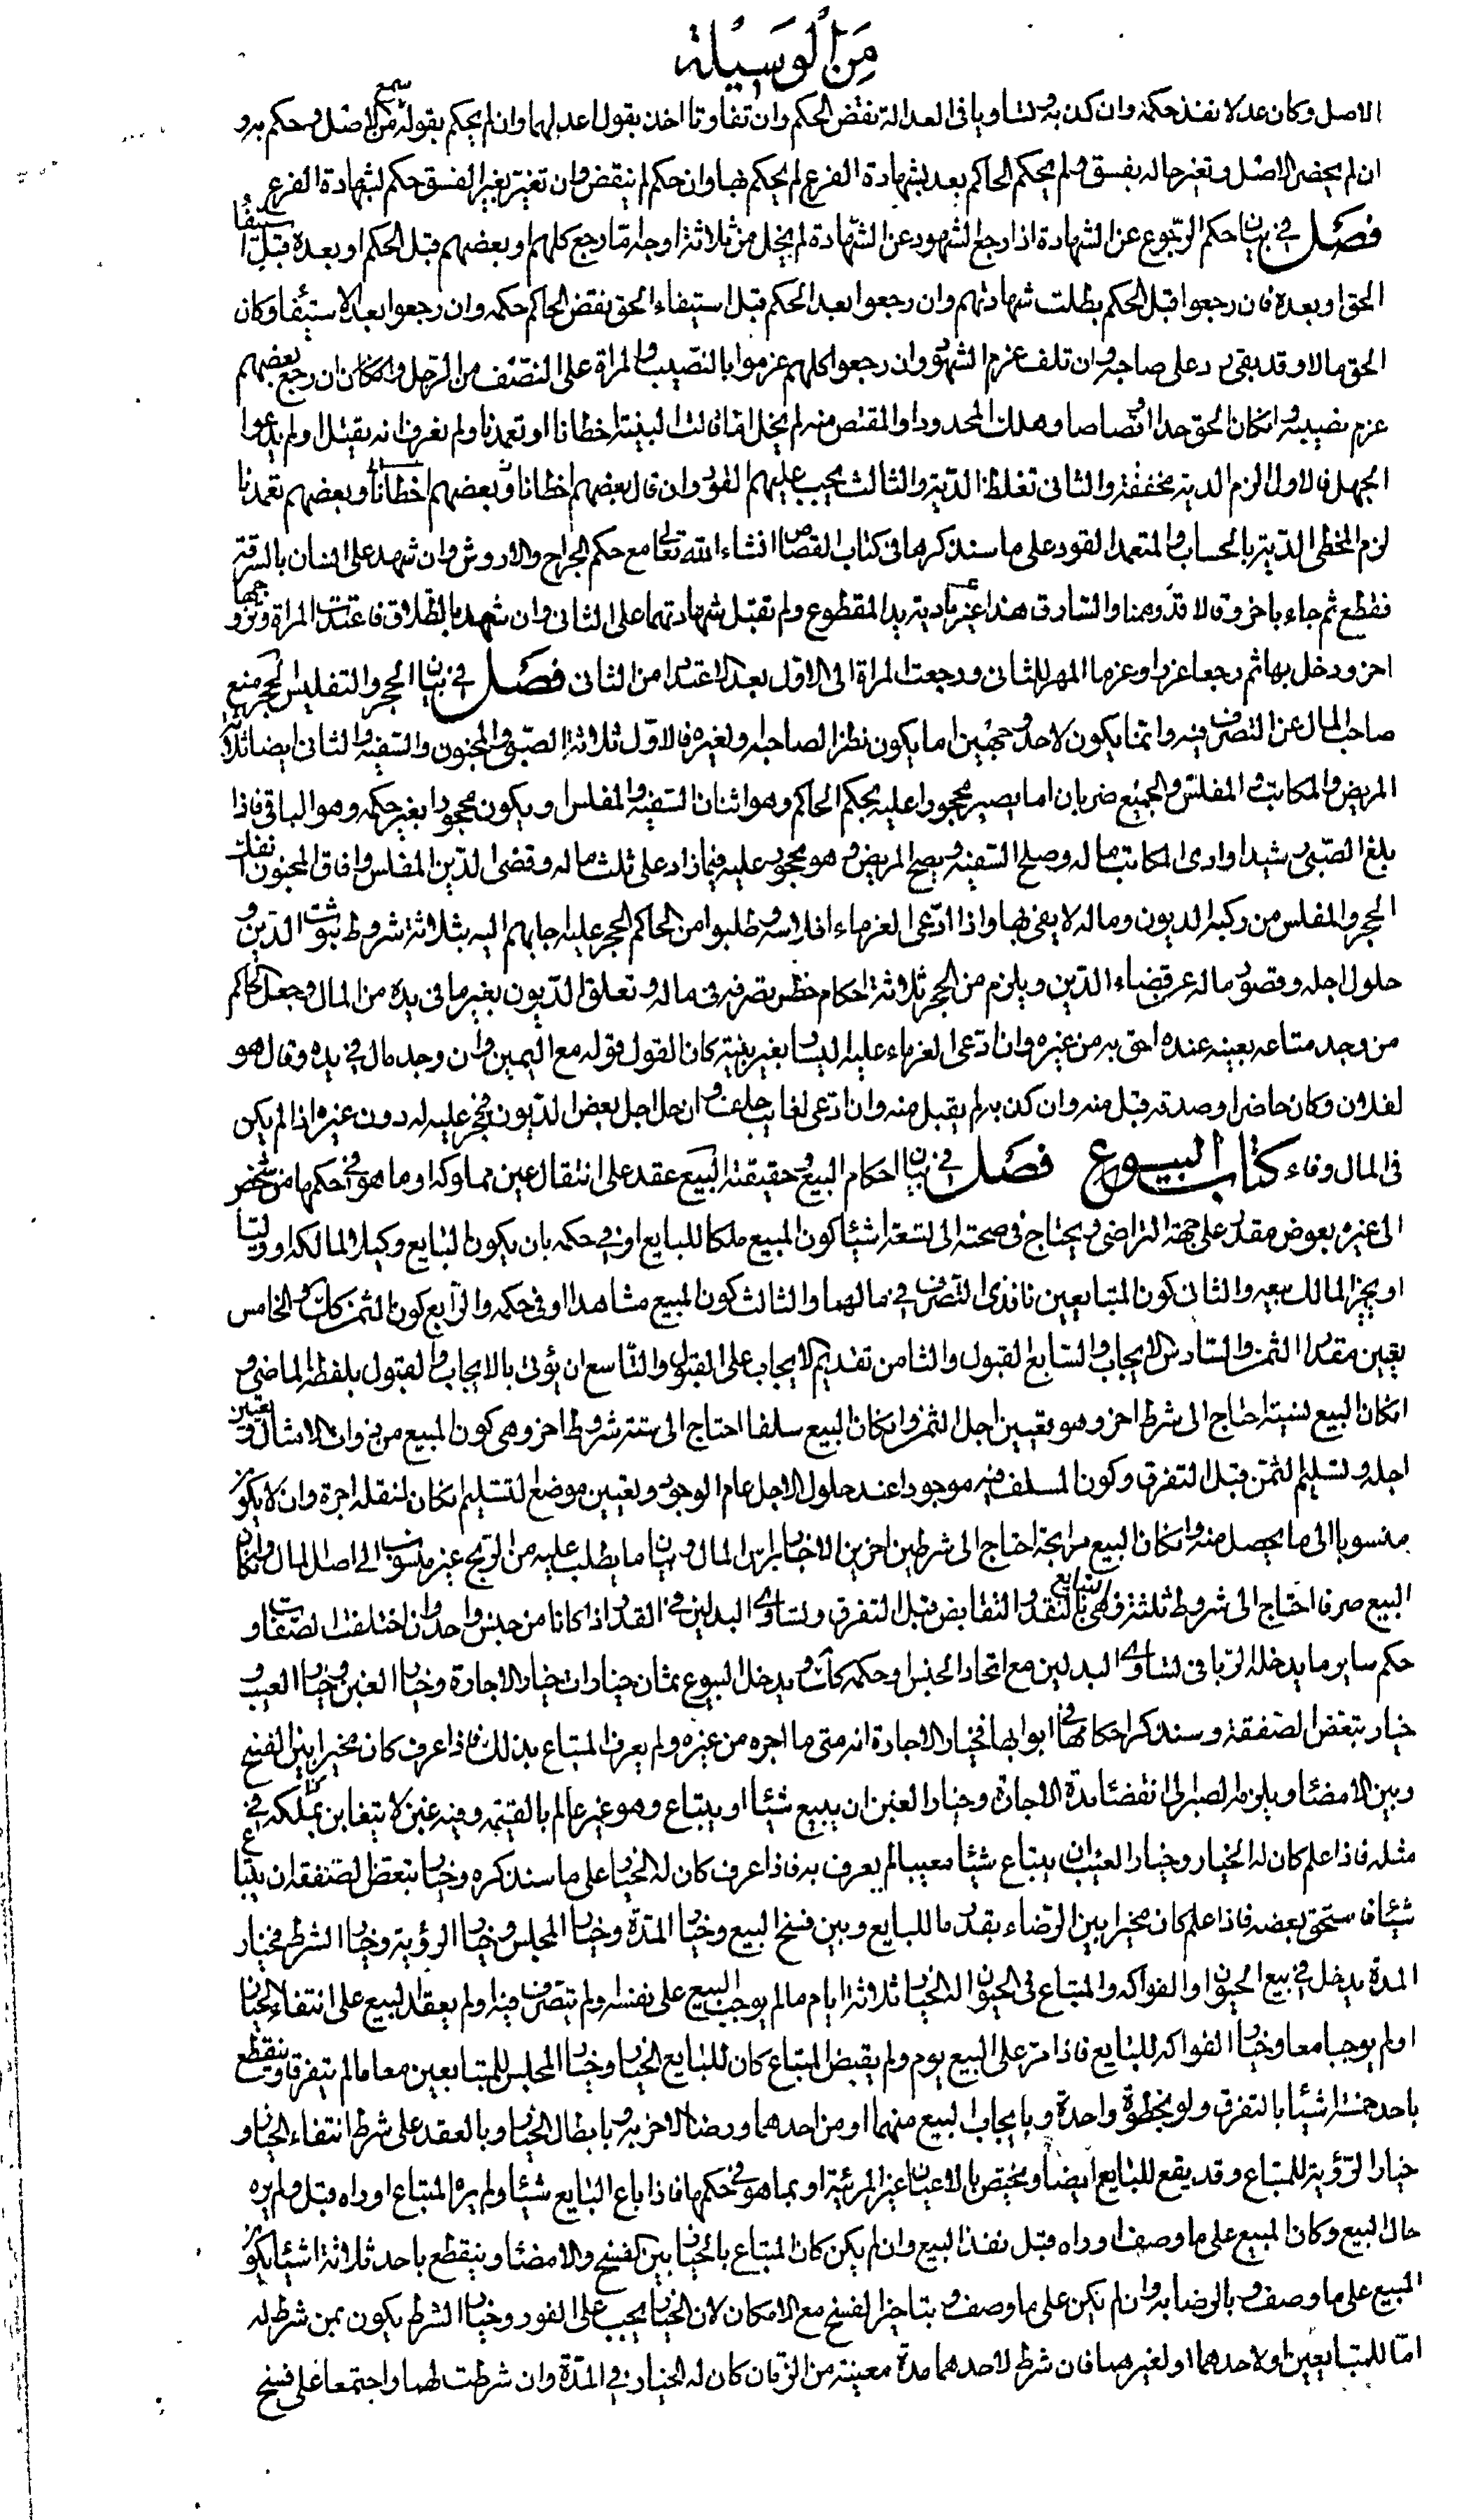 من الوسيلة
الاصل وكان عدلا نفذ حكمه وان كذبه وتساويا فى العدالة نقض الحكم وان تفاوتا اخذ بقول اعدلهما وان لم يحكم بقوله سمع من الاصل وحكم به و
ان لم يحضر الاصل وتغير حاله بفسق ولم يحكم الحاكم بعد بشهادة الفرع لم يحكم بها وان حكم لم ينقض وان تغير بغير الفسق حكم بشهادة الفرع
فصل في بيان حكم الرجوع عن الشهادة اذا رجع الشهود عن الشهادة لم يخل من ثلاثة اوجه اما رجع كلهم او بعضهم قبل الحكم او بعده قبل استيفاء
الحق او بعده فان رجعوا قبل الحكم بطلت شهادتهم وان رجعوا بعد الحكم قبل استيفاء الحق نقض الحاكم حكمه وان رجعوا بعد الاستيفاء وكان
الحق مالا وقد بقى رد على صاحبه وان تلف غرم الشهود وان رجعوا كلهم غرموا بالنصيب والمراة على النصف من الرجل وان رجع بعضهم
غرم نصيبه وان كان الحق حدا او قصاصا وهلك المحدود او المقتص منه لم يخل اما قالت البينة اخطانا او تعمدنا ولم نعرف انه يقتل او لم يدعوا
الجهل فالاول الزم الدية مخففة والثانى تغلظ الدية والثالث يجب عليهم القود وان قال بعضهم اخطانا وبعضهم تعمدنا
لزم المخطى الدية بالحساب والمتعمد القود على ما سنذكرها فى كتاب القصاص انشاء الله تعالى مع حكم الجراح والاروش وان شهد على انسان بالسرقة
فقطع ثم جاء باخر وقالا قد وهمنا والسارق هذا غرما دية يد المقطوع ولم تقبل شهادتهما على الثانى وان شهدا بالطلاق فاعتدت المراة وتزوجها
اخر ودخل بها ثم رجعا عزرا وغرما المهر للثانى ورجعت المراة الى الاول بعد الاعتداد من الثانى فصل في بيان الحجر والتفليس الحجر منع
صاحب المال عن التصرف فيه وانما يكون لاحد وجهين اما يكون نظرا لصاحبه ولغيره فالاول ثلاثة الصبى والمجنون والسفيه والثانى ايضا ثلاثة
المريض والمكاتب والمفلس والجميع ضربان اما يصير محجورا عليه بحكم الحاكم وهو اثنان السفيه والمفلس او يكون محجورا بغير حكمه وهو الباقى فاذا
بلغ الصبى رشيدا وادى المكاتب ماله وصلح السفيه وصح المريض وهو محجور عليه فيما زاد على ثلث ماله وقضى الدين المفلس وافاق المجنون انفك
الحجر والمفلس من ركبه الديون وماله لا يفى بها واذا ادعى الغرماء افلاسه وطلبوا من الحاكم الحجر عليه اجابهم اليه بثلاثة شروط ثبوت الدين و
حلول اجله وقصور ماله عن قضاء الدين ويلزم من الحجر ثلاثة احكام حظر تصرفه فى ماله وتعلق الديون بغير ما فى يده من المال وجعل الحاكم
من وجد متاعه بعينه عنده احق به من غيره وان ادعى الغرماء عليه اليسار بغير بينة كان القول قوله مع اليمين وان وجد مال في يده وقال هو
لفلان وكان حاضرا وصدقه قبل منه وان كذبه لم يقبل منه وان ادعى لغايب حلف وان حل اجل بعض الديون حجر عليه له دون غيره اذا لم يكن
فى المال وفاء كتاب البيوع فصل في بيان احكام البيع وحقيقته البيع عقد على انتقال عين مملوكة او ما هو في حكمها من شخص
الى غيره بعوض مقدر على جهة التراضى ويحتاج فى صحته الى تسعة اشياء كون المبيع ملكا للبايع او في حكمه بان يكون البايع وكيل المالكه او وليا
او يجيز المالك بيعه والثانى كون المتبايعين نافذى التصرف في مالهما والثالث كون المبيع مشاهدا او فى حكمه والرابع كون الثمن كذلك والخامس
تعيين مقدار الثمن والسادس الايجاب والسابع القبول والثامن تقديم الايجاب على القبول والتاسع ان يؤتى بالايجاب والقبول بلفظ الماضى و
ان كان البيع نسيئة احتاج الى شرط اخر وهو تعيين اجل الثمن وان كان البيع سلفا احتاج الى ستة شروط اخر وهى كون المبيع من ذوات الامثال وتعيين
اجله وتسليم الثمن قبل التفرق وكون المسلف فيه موجودا عند حلول الاجل عام الوجود وتعيين موضع التسليم ان كان لنقله اجرة وان لا يكون
منسوبا الى ما يحصل منه وان كان البيع مرابحة احتاج الى شرطين اخرين الاخبار براس المال وبيان ما يطلب عليه من الربح غير منسوب الى اصل المال وان كان
البيع صرفا احتاج الى شروط ثلثة وهى تبايع بالنقد والتقابض قبل التفرق وتساوى البدلين في القدر اذا كانا من جنس واحد وان اختلفت الصفات و
حكم ساير ما يدخله الربا فى تساوى البدلين مع اتحاد الجنس وحكمه كذلك ويدخل البيوع ثمان خيارات خيار الاجارة وخيار الغبن وخيار العيب و
خيار تبعض الصفقة وسنذكر احكامها في ابوابها فخيار الاجارة انه متى ما اجره من غيره ولم يعرف المبتاع بذلك فاذا عرف كان مخيرا بين الفسخ
وبين الامضاء ويلزمه الصبر الى انقضاء مدة الاجارة وخيار الغبن ان يبيع شيئا او يبتاع وهو غير عالم بالقيمة وفيه غبن لا يتغابن بملكه في
مثله فاذا علم كان له الخيار وخيار العيب ان يبتاع شيئا معيبا لم يعرف به فاذا عرف كان له الخيار على ما سنذكره وخيار تبعض الصفقة ان يبتاع
شيئا فاستحق بعضه فاذا علم كان مخيرا بين الرضاء بقدر ما للبايع وبين فسخ البيع وخيار المدة وخيار المجلس وخيار الرؤية وخيار الشرط فخيار
المدة يدخل في بيع الحيوان او الفواكه والمبتاع فى الحيوان له الخيار ثلاثة ايام ما لم يوجب البيع على نفسه ولم يتصرف فيه ولم يعقد البيع على انتفاء الخيار
او لم يوجبا معا وخيار الفواكه للبايع فاذا مر على البيع يوم ولم يقبض المبتاع كان للبايع الخيار وخيار المجلس للمتبايعين معا ما لم يتفرقا وينقطع
باحد خمسة اشياء بالتفرق ولو بخطوة واحدة وبايجاب البيع منهما او من احدهما ورضا الاخر به وبابطال الخيار وبالعقد على شرط انتفاء الخيار و
خيار الرؤية للمبتاع وقد يقع للبايع ايضا ويختص بالاعيان غير المرئية او بما هو في حكمها فاذا باع البايع شيئا ولم يره المبتاع او راه قبل ولم يره
حال البيع وكان المبيع على ما وصف او راه قبل نفذ البيع وان لم يكن كان المبتاع بالخيار بين الفسخ والامضاء وينقطع باحد ثلاثة اشياء بكون
المبيع على ما وصف وبالرضا به وان لم يكن على ما وصف وبتاخير الفسخ مع الامكان لان الخيار يجب على الفور وخيار الشرط يكون بمن شرط له
اما للمتبايعين او لاحدهما او لغيرهما فان شرط لاحدهما مدة معينة من الزمان كان له الخيار في المدة وان شرطت لهما واجتمعا على فسخ